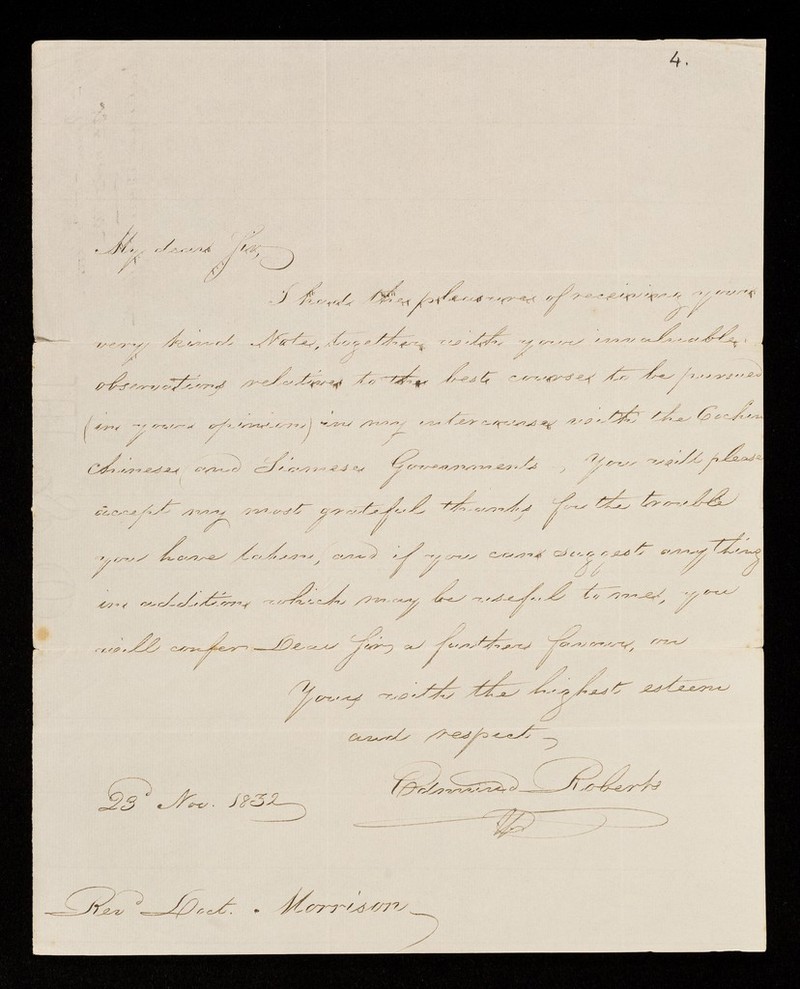 4.
My dear Sir,
I had the pleasure of receiving your
very kind Note, together with your invaluable
observations relative to the best course to be pursued
(in your opinion) in my intercourse with the Cochin
Chinese, and Siamese Governments, You will please
accept my most grateful thanks for the trouble
you have taken, and if you can suggest any thing
in addition which may be useful to me, you
will confer Dear Sir, a further favour, on
Yours with the highest esteem
and respect,
Edmund Roberts
23d Nov. 1832
Revd Doct. Morrison